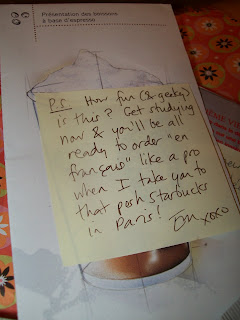 Présentation des boissons
à base d'espresso
P.S. How fun (& geeky)
is this? Get studying
now & you'll be all
ready to order "en
français" like a pro
when I take you to
that posh Starbucks
in Paris!
xoxo